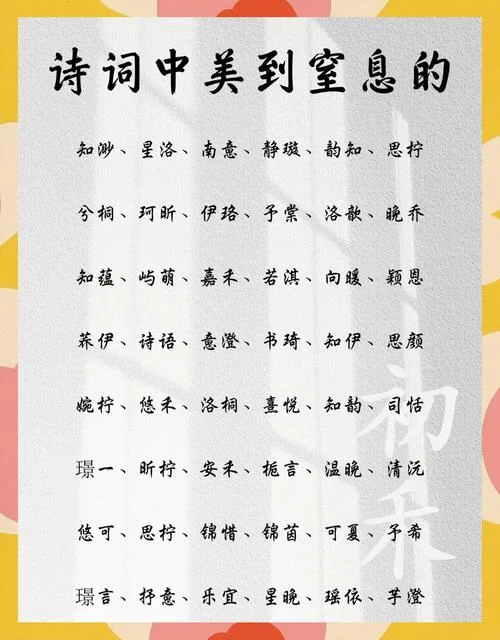 诗词中美到窒息的
知渺、星洛、南意、静璇、韵知、思柠
兮桐、珂昕、伊珞、予棠、洛歆、晚乔
知蕴、屿萌、嘉禾、若淇、向暖、颖恩
荞伊、诗语、意澄、书琦、知伊、思颜
婉柠、悠禾、洛桐、喜悦、知韵、司恬
璟一、昕柠、安禾、栀言、温晚、清沅
悠可、思柠、锦惜、锦茵、可夏、予希
璟言、抒意、乐宜、星晚、瑶依、芋澄
初禾